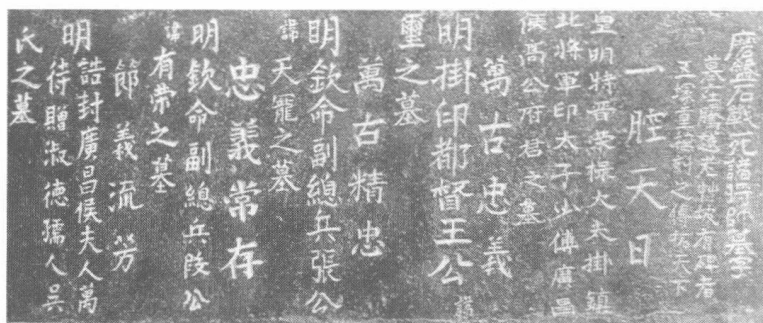 磨盤石戰死諸將帥墓字
墓在騰越老艸坡有碑者
五塚直書封之天下
一腔天日
皇明特晉榮祿大夫掛鎮
北將軍印太子少傅廣昌
侯高公府君之墓
萬古忠義
明掛印都督王公諱
璽之墓
萬古精忠
明欽命副總兵張公
諱天寵之墓
忠義常存
明欽命副總兵段公
諱有之墓
節義流芳
明誥封廣昌侯夫人萬
待贈淑德孺人吳
氏之墓